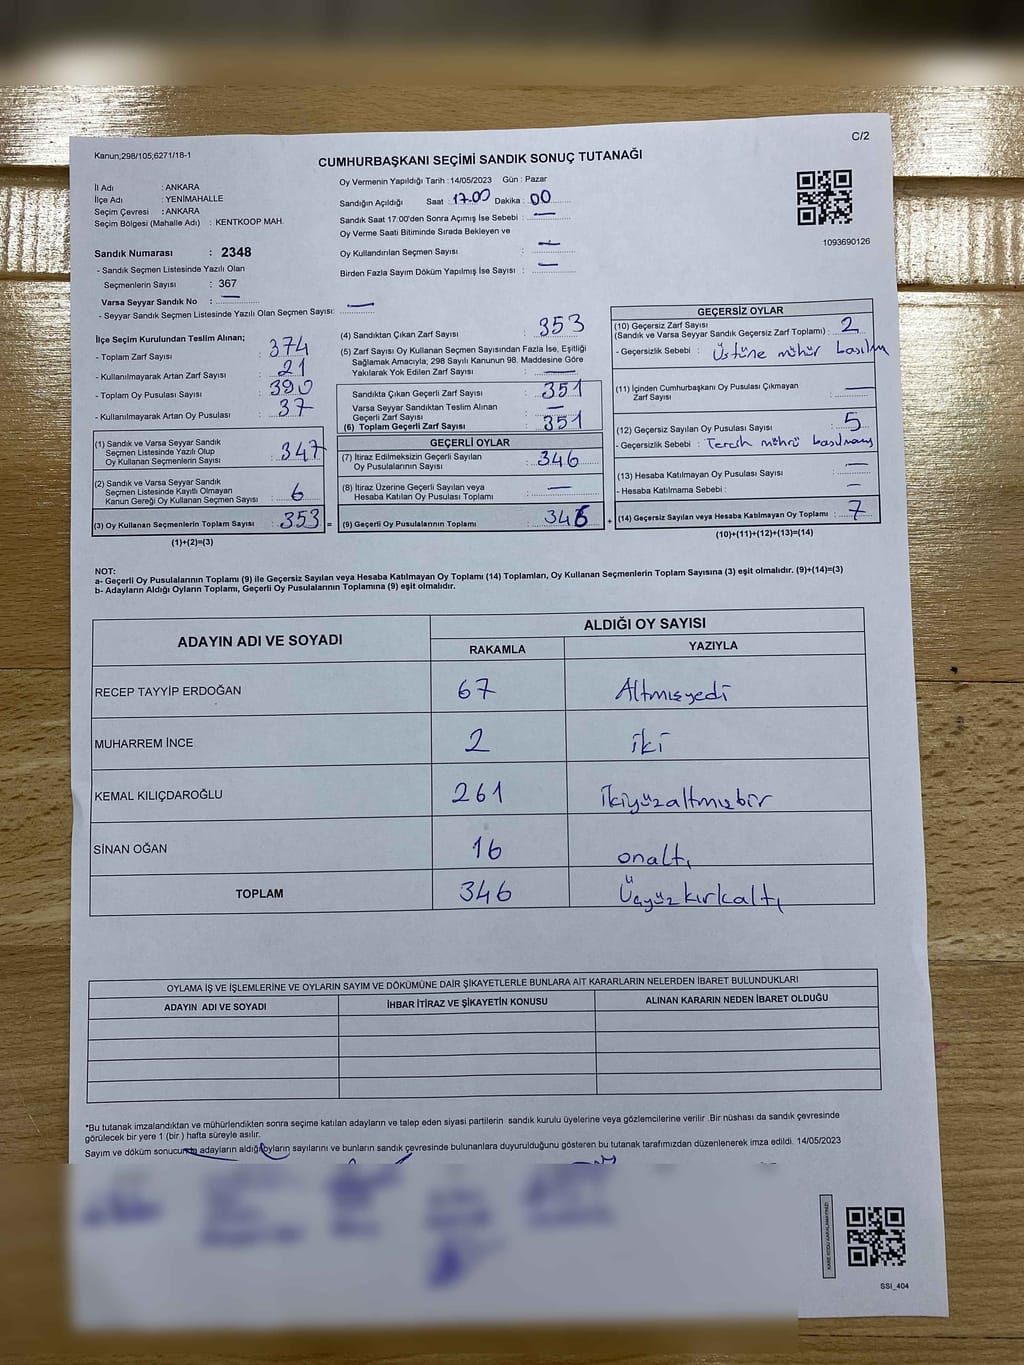 C/2
Kanun;298/105;6271/18-1
CUMHURBAŞKANI SEÇİMİ SANDIK SONUÇ TUTANAĞI
İl Adı : ANKARA
İlçe Adı : YENİMAHALLE
Seçim Çevresi : ANKARA
Seçim Bölgesi (Mahalle Adı) : KENTKOOP MAH.
Sandık Numarası : 2348
- Sandık Seçmen Listesinde Yazılı Olan
Seçmenlerin Sayısı : 367
Varsa Seyyar Sandık No : —
- Seyyar Sandık Seçmen Listesinde Yazılı Olan Seçmen Sayısı: —
Oy Vermenin Yapıldığı Tarih : 14/05/2023 Gün : Pazar
Sandığın Açıldığı Saat : 17.00 Dakika : 00
Sandık Saat 17:00'den Sonra Açımış İse Sebebi : —
Oy Verme Saati Bitiminde Sırada Bekleyen ve
Oy Kullandırılan Seçmen Sayısı : —
Birden Fazla Sayım Döküm Yapılmış İse Sayısı : —
1093690126
İlçe Seçim Kurulundan Teslim Alınan;
- Toplam Zarf Sayısı : 374
- Kullanılmayarak Artan Zarf Sayısı : 21
- Toplam Oy Pusulası Sayısı : 390
- Kullanılmayarak Artan Oy Pusulası : 37
(1) Sandık ve Varsa Seyyar Sandık
Seçmen Listesinde Yazılı Olup
Oy Kullanan Seçmenlerin Sayısı : 347
(2) Sandık ve Varsa Seyyar Sandık
Seçmen Listesinde Kayıtlı Olmayan
Kanun Gereği Oy Kullanan Seçmen Sayısı : 6
(3) Oy Kullanan Seçmenlerin Toplam Sayısı : 353 =
(1)+(2)=(3)
(4) Sandıktan Çıkan Zarf Sayısı : 353
(5) Zarf Sayısı Oy Kullanan Seçmen Sayısından Fazla İse, Eşitliği
Sağlamak Amacıyla; 298 Sayılı Kanunun 98. Maddesine Göre
Yakılarak Yok Edilen Zarf Sayısı : —
Sandıkta Çıkan Geçerli Zarf Sayısı : 351
Varsa Seyyar Sandıktan Teslim Alınan
Geçerli Zarf Sayısı : —
(6) Toplam Geçerli Zarf Sayısı : 351
GEÇERLİ OYLAR
(7) İtiraz Edilmeksizin Geçerli Sayılan
Oy Pusulalarının Sayısı : 346
(8) İtiraz Üzerine Geçerli Sayılan veya
Hesaba Katılan Oy Pusulası Toplamı : —
(9) Geçerli Oy Pusulalarının Toplamı : 346 +
GEÇERSİZ OYLAR
(10) Geçersiz Zarf Sayısı
(Sandık ve Varsa Seyyar Sandık Geçersiz Zarf Toplamı) : 2
- Geçersizlik Sebebi : Üstüne mühür
(11) İçinden Cumhurbaşkanı Oy Pusulası Çıkmayan
Zarf Sayısı : —
(12) Geçersiz Sayılan Oy Pusulası Sayısı : 5
- Geçersizlik Sebebi : Tercih mührü basılmamış
(13) Hesaba Katılmayan Oy Pusulası Sayısı : —
- Hesaba Katılmama Sebebi : —
(14) Geçersiz Sayılan veya Hesaba Katılmayan Oy Toplamı : 7
(10)+(11)+(12)+(13)=(14)
NOT:
a- Geçerli Oy Pusulalarının Toplamı (9) ile Geçersiz Sayılan veya Hesaba Katılmayan Oy Toplamı (14) Toplamları, Oy Kullanan Seçmenlerin Toplam Sayısına (3) eşit olmalıdır. (9)+(14)=(3)
b- Adayların Aldığı Oyların Toplamı, Geçerli Oy Pusulalarının Toplamına (9) eşit olmalıdır.
ADAYIN ADI VE SOYADI
ALDIĞI OY SAYISI
RAKAMLA YAZIYLA
RECEP TAYYİP ERDOĞAN 67 Altmışyedi
MUHARREM İNCE 2 iki
KEMAL KILIÇDAROĞLU 261 ikiyüzaltmışbir
SİNAN OĞAN 16 onaltı
TOPLAM 346 Üçyüzkırkaltı
OYLAMA İŞ VE İŞLEMLERİNE VE OYLARIN SAYIM VE DÖKÜMÜNE DAİR ŞİKAYETLERLE BUNLARA AİT KARARLARIN NELERDEN İBARET BULUNDUKLARI
ADAYIN ADI VE SOYADI İHBAR İTİRAZ VE ŞİKAYETİN KONUSU ALINAN KARARIN NEDEN İBARET OLDUĞU
*Bu tutanak imzalandıktan ve mühürlendikten sonra seçime katılan adayların ve talep eden siyasi partilerin sandık kurulu üyelerine veya gözlemcilerine verilir .Bir nüshası da sandık çevresinde
görülecek bir yere 1 (bir ) hafta süreyle asılır.
Sayım ve döküm sonucunda adayların aldığı oyların sayılarını ve bunların sandık çevresinde bulunanlara duyurulduğunu gösteren bu tutanak tarafımızdan düzenlenerek imza edildi. 14/05/2023
SSI_404